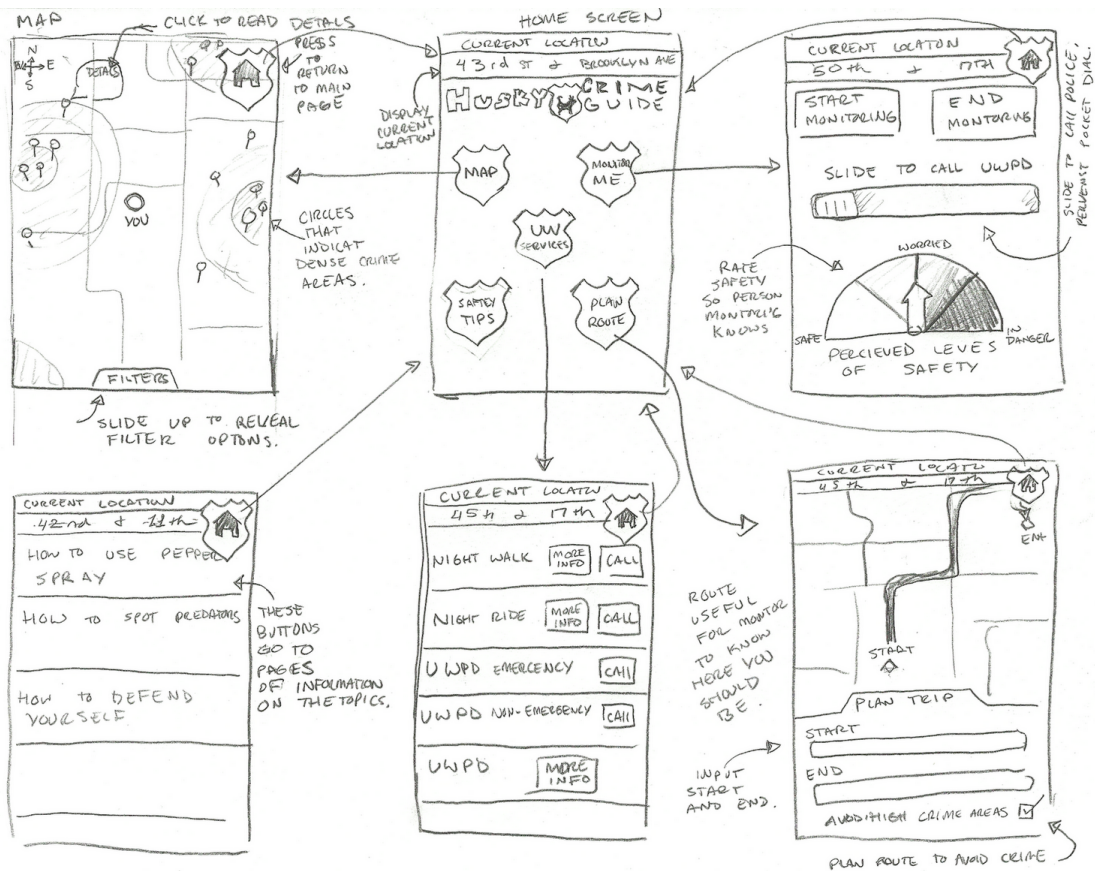 MAP
CLICK TO READ DETALS
N
E
S
DETALS
PRESS
TO
RETURN
TO MAIN
PAGE
YOU
CIRCLES
THAT
INDICAT
DENSE CRIME
AREAS.
FILTERS
SLIDE UP TO REVEAL
FILTER OPTONS.
HOME SCREEN
CURRENT LOCATION
43rd ST & BROOKLYN AVE
HUSKY CRIME
GUIDE
DISPLAY
CURRENT
LOCATION
MAP
MONITOR
ME
UW
SERVICES
SAFTEY
TIPS
PLAN
ROUTE
CURRENT LOCATON
50th & 17TH
START
MONITORING
END
MONTORING
SLIDE TO CALL UWPD
SLIDE TO CALL POLICE,
PERVENST POCKET DIAL.
RATE
SAFETY
SO PERSON
MONTARI'G
KNOWS
WORRIED
SAFE
IN
DANGER
PERCIEVED LEVES
OF SAFETY
CURRENT LOCATION
42nd & 11th
HOW TO USE PEPPER
SPRAY
HOW TO SPOT PREDATORS
HOW TO DEFEND
YOURSELF
THESE
BUTTONS
GO TO
PAGES
OF INFORMATION
ON THE TOPICS.
CURRENT LOCATON
45th & 17th
NIGHT WALK
MORE
INFO
CALL
NIGHT RIDE
MORE
INFO
CALL
UWPD EMERGENCY
CALL
UWPD NON-EMERGENCY
CALL
UWPD
MORE
INFO
CURRENT LOCATN
45th & 17th
END
START
ROUTE
USEFUL
FOR MONTOR
TO KNOW
HERE YOU
SHOULD
BE.
PLAN TRIP
START
END
AVOID HIGH CRIME AREAS
INPUT
START
AND END.
PLAN ROUTE TO AVOID CRIME